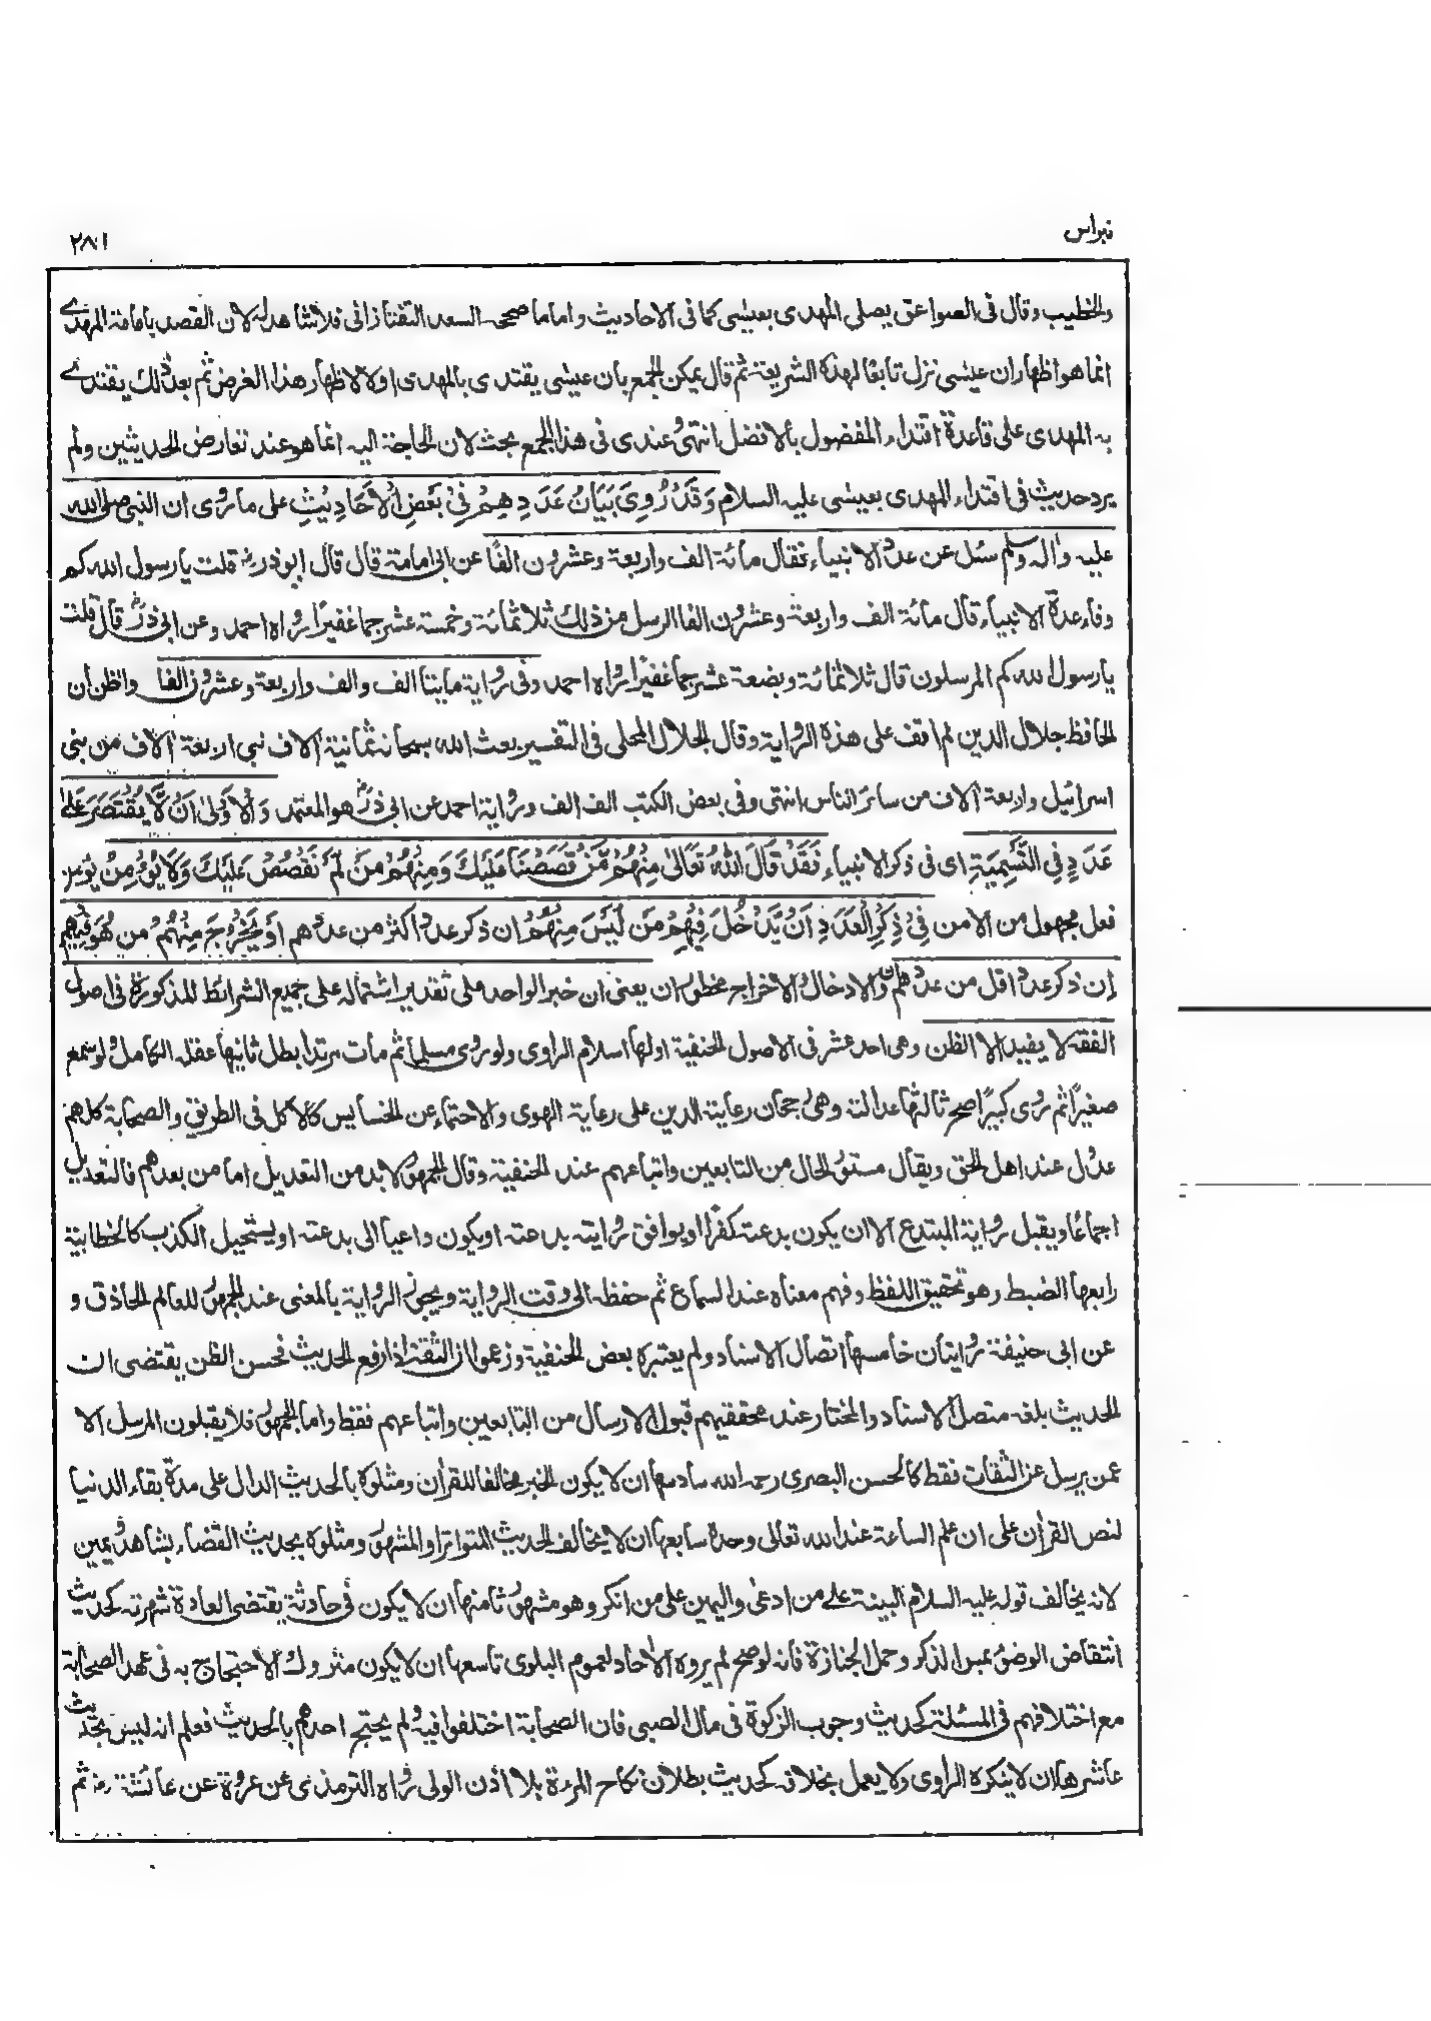 نبراس
۲۸۱
والخطيب وقال فى الصواعق يصلى المهدى بعيسى كما فى الاحاديث واما ما صححه السعد التفتازانى فلا شاهد له لان القصد بامامة المهدے
انما هو اظهار ان عيسى نزل تابعًا لهذه الشريعة ثم قال يمكن الجمع بان عيسى يقتدى بالمهدى اولا لاظهار هذا الغرض ثم بعد ذلك يقتدے
به المهدى على قاعدة اقتداء المفضول بالافضل انتهى وعندى فى هذا الجمع بحث لان الحاجة اليه انما هو عند تعارض الحديثين ولم
يرد حديث فى اقتداء المهدى بعيسى عليه السلام وَقَدْ رُوِىَ بَيَانُ عَدَدِهِمْ فِىْ بَعْضِ الْاَحَادِيْثِ على ما روى ان النبى صلى الله
عليه واله وسلم سئل عن عدد الانبياء فقال مائة الف واربعة وعشرون الفًا عن ابى امامة قال قال ابوذر رضـ قلت يا رسول الله كم
وفاء عدة الانبياء قال مائة الف واربعة وعشرون الفا الرسل من ذلك ثلاثمائة وخمسة عشر جما غفيرًا رواه احمد وعن ابى ذر قال قلت
يا رسول الله كم المرسلون قال ثلاثمائة وبضعة عشر جما غفيرًا رواه احمد وفى رواية مايتا الف والف واربعة وعشرون الفا واظن ان
الحافظ جلال الدين لم اقف على هذه الرواية وقال الجلال المحلى فى التفسير بعث الله سبحانه ثمانية الاف نبى اربعة الاف من بنى
اسرائيل واربعة الاف من سائر الناس انتهى وفى بعض الكتب الف الف ورواية احمد عن ابى ذر هو المعتمد وَالْاَوْلٰى اَنْ لَّا يُقْتَصَرَ عَلٰى
عَدَدٍ فِى التَّسْمِيَةِ اى فى ذكر الانبياء فَقَدْ قَالَ اللّٰهُ تَعَالٰى مِنْهُمْ مَّنْ قَصَصْنَا عَلَيْكَ وَمِنْهُمْ مَنْ لَّمْ نَقْصُصْ عَلَيْكَ وَلَا يُؤْمَنُ
فعل مجهول من الامن فِىْ ذِكْرِ الْعَدَدِ اَنْ يَّدْخُلَ فِيْهِمْ مَنْ لَيْسَ مِنْهُمْ ان ذكر عدد اكثر من عددهم اَوْ يَخْرُجَ مِنْهُمْ مَن هُوَ فِيْهِمْ
ان ذكر عدد اقل من عددهم والادخال والاخراج محظوران يعنى ان خبر الواحد على تقدير اشتماله على جميع الشرائط المذكورة فى اصول
الفقه لا يفيد الا الظن وهى احد عشر فى الاصول الحنفية اولها اسلام الراوى ولو روى مسلما ثم مات مرتدا بطل ثانيها عقله الكامل ولو سمع
صغيرًا ثم روى كبيرًا صح ثالثها عدالته وهى رجحان رعاية الدين على رعاية الهوى والاحتماء عن الخسايس كالاكل فى الطريق والصحابة كلهم
عدول عند اهل الحق ويقال مستور الحال من التابعين واتباعهم عند الحنفية وقال الجمهور لا بد من التعديل اما من بعدهم فالتعديل
اجماعًا ويقبل رواية المبتدع الا ان يكون بدعته كفرًا او يوافق روايته بدعته او يكون داعيا الى بدعته او يستحيل الكذب كالخطابية
رابعها الضبط وهو تحقيق اللفظ وفهم معناه عند السماع ثم حفظه الى وقت الرواية ويجوز الرواية بالمعنى عند الجمهور للعالم الحاذق و
عن ابى حنيفة روايتان خامسها اتصال الاسناد ولم يعتبره بعض الحنفية وزعموا ان الثقة اذا رفع الحديث فحسن الظن يقتضى ان
الحديث بلغه متصل الاسناد والمختار عند محققيهم قبول الارسال من التابعين واتباعهم فقط واما الجمهور فلا يقبلون المرسل الا
عمن يرسل عن الثقات فقط كالحسن البصرى رحمه الله سادسها ان لا يكون الخبر مخالفا للقرآن ومثلوه بالحديث الدال على مدة بقاء الدنيا
لنص القرآن على ان علم الساعة عند الله تعالى وحده سابعها ان لا يخالف الحديث المتواتر او المشهور ومثلوه بحديث القضاء بشاهد ويمين
لانه يخالف قوله عليه السلام البينة على من ادعى واليمين على من انكر وهو مشهور ثامنها ان لا يكون فى حادثة يقتضى العادة شهرته كحديث
انتقاض الوضوء بمس الذكر وحمل الجنازة فانه لو صح لم يروه الآحاد لعموم البلوى تاسعها ان لا يكون متروك الاحتجاج به فى عهد الصحابة
مع اختلافهم فى المسئلة كحديث وجوب الزكوة فى مال الصبى فان الصحابة اختلفوا فيه ولم يحتج احدهم بالحديث فعلم انه ليس بحديث
عاشرها ان لا ينكره الراوى ولا يعمل بخلافه كحديث بطلان نكاح المرءة بلا اذن الولى رواه الترمذى عن عروة عن عائشة رضـ ثم